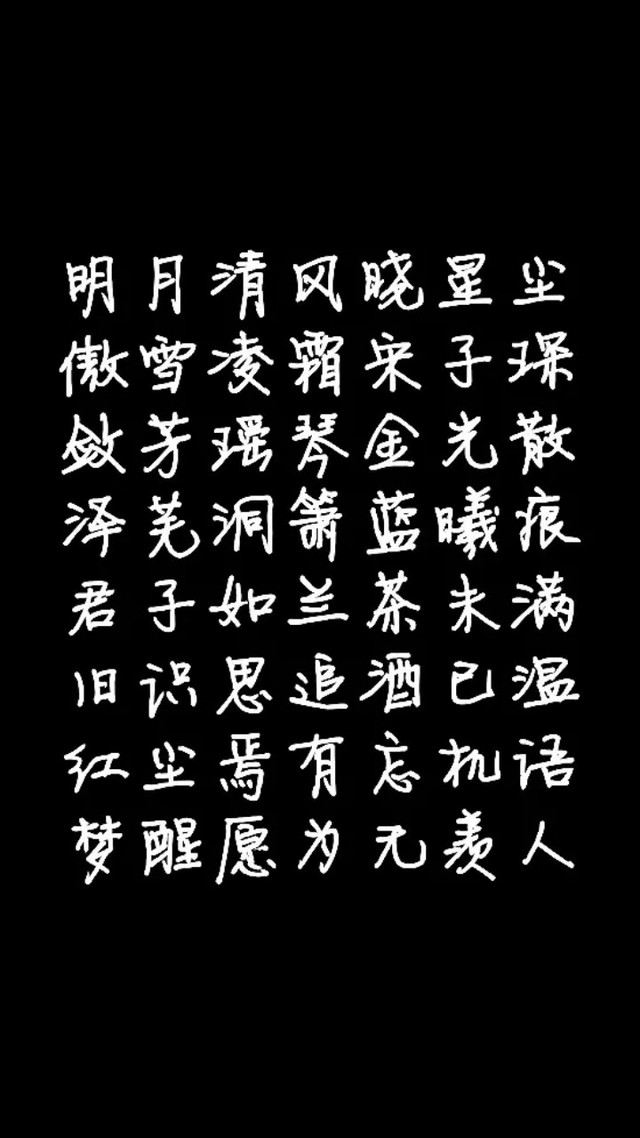 明月清风晓星尘
傲雪凌霜宋子琛
敛芳瑶琴金光散
泽芜洞箫蓝曦痕
君子如兰茶未满
旧识思追酒已温
红尘焉有忘机语
梦醒愿为无羡人